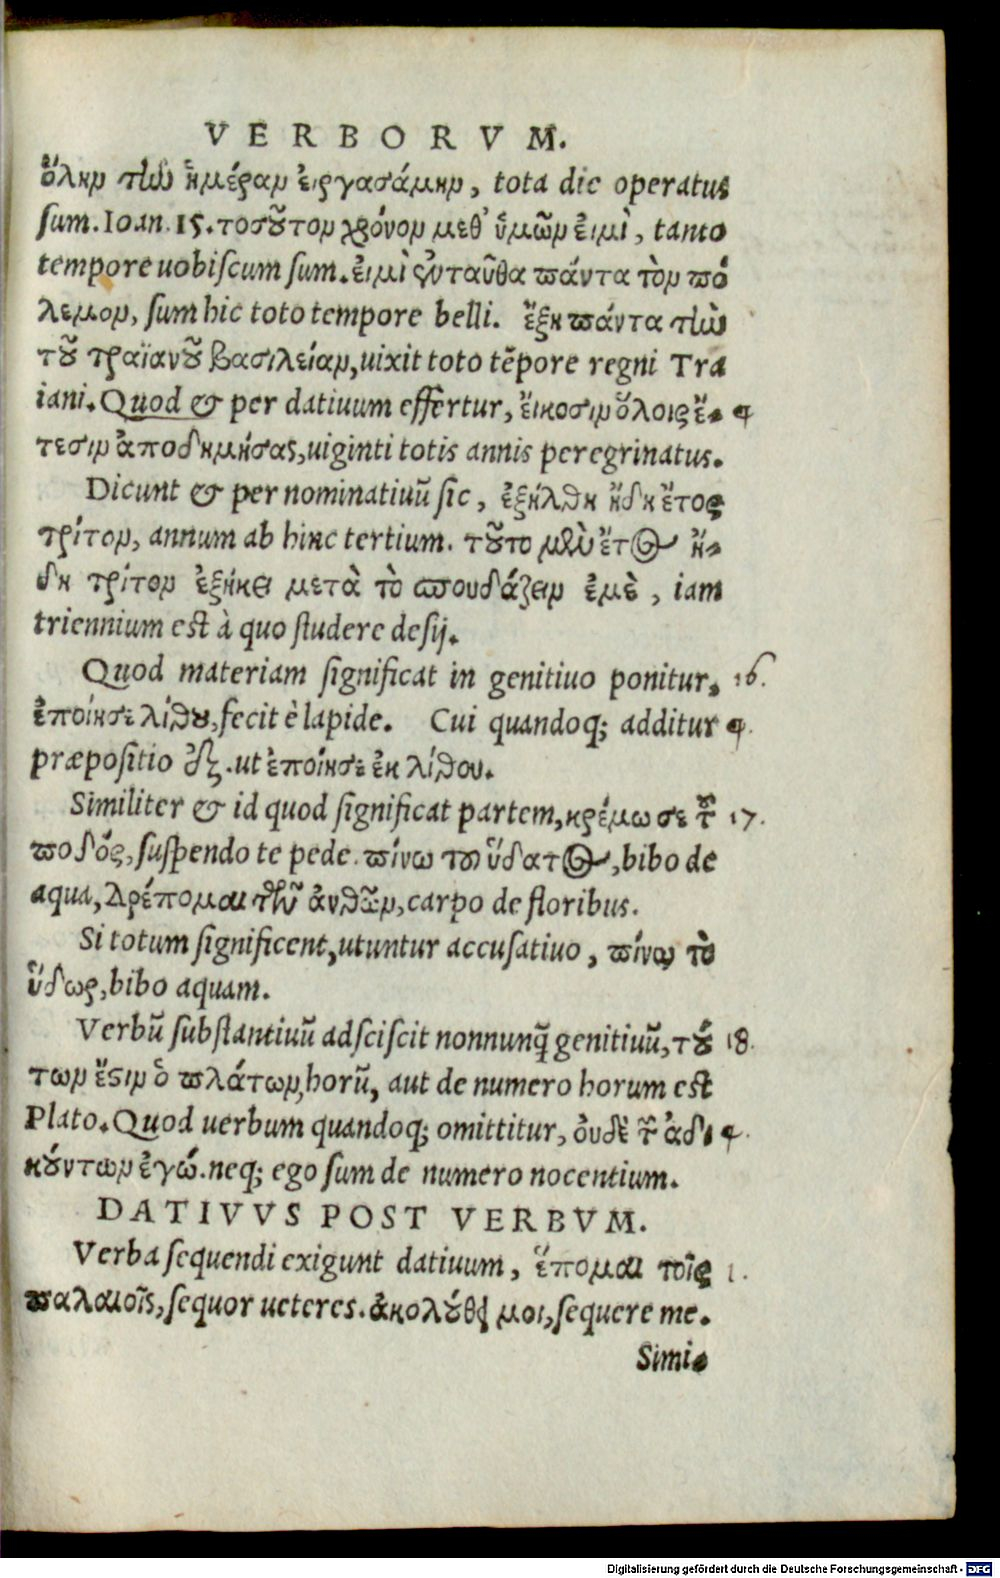 VERBORVM.
ὅλην τὼ ἡμέραν ἐιργασάμην, tota die operatus
sum. Ioan. 15. τοσοῦτον χρόνον μεθ' ὑμῶν ἐιμὶ, tanto
tempore uobiscum sum. ἐιμὶ ἐνταῦθα πάντα τὸν πό
λεμον, sum hic toto tempore belli. ἔζη πάντα τὼ
τοῦ τραϊανοῦ βασιλείαν, uixit toto tẽpore regni Tra
iani. Quod & per datiuum effertur, ἐικοσιν ὅλοις ἔ-
τεσιν ἀποδημήσας, uiginti totis annis peregrinatus.
Dicunt & per nominatiuũ sic, ἐξῆλθε ἤδη ἔτος
τρίτον, annum ab hinc tertium. τοῦτο μὲν ἔτος ἤ-
δη τρίτον ἐξήκει μετὰ τὸ σπουδάζειν ἐμὲ, iam
triennium est à quo studere desij.
Quod materiam significat in genitiuo ponitur, 16.
ἐποίησε λίθου, fecit è lapide. Cui quandoq; additur
præpositio ἐξ. ut ἐποίησε ἐκ λίθου.
Similiter & id quod significat partem, κρέμω σε τοῦ 17.
ποδός, suspendo te pede. πίνω τοῦ ὕδατος, bibo de
aqua, δρέπομαι τῶν ἀνθῶν, carpo de floribus.
Si totum significent, utuntur accusatiuo, πίνω τὸ
ὕδωρ, bibo aquam.
Verbũ substantiuũ adsciscit nonnunq̃ genitiuũ, τού 18.
των ἔστιν ὁ πλάτων, horũ, aut de numero horum est
Plato. Quod uerbum quandoq; omittitur, οὐδὲ τῶν ἀδι
κούντων ἐγώ. neq; ego sum de numero nocentium.
DATIVVS POST VERBVM.
Verba sequendi exigunt datiuum, ἕπομαι τοῖς 1.
παλαιοῖς, sequor ueteres. ἀκολούθει μοι, sequere me.
Simi-
Digitalisierung gefördert durch die Deutsche Forschungsgemeinschaft - DFG